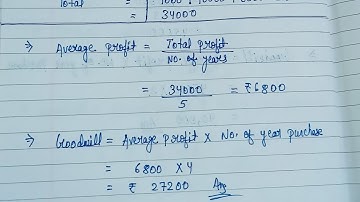 Total =
= 34000
⇒ Average profit = Total profit
No. of years
= 34000 = ₹6800
5
⇒ Goodwill = Average Profit × No. of year purchase
= 6800 × 4
= ₹ 27200 Ans